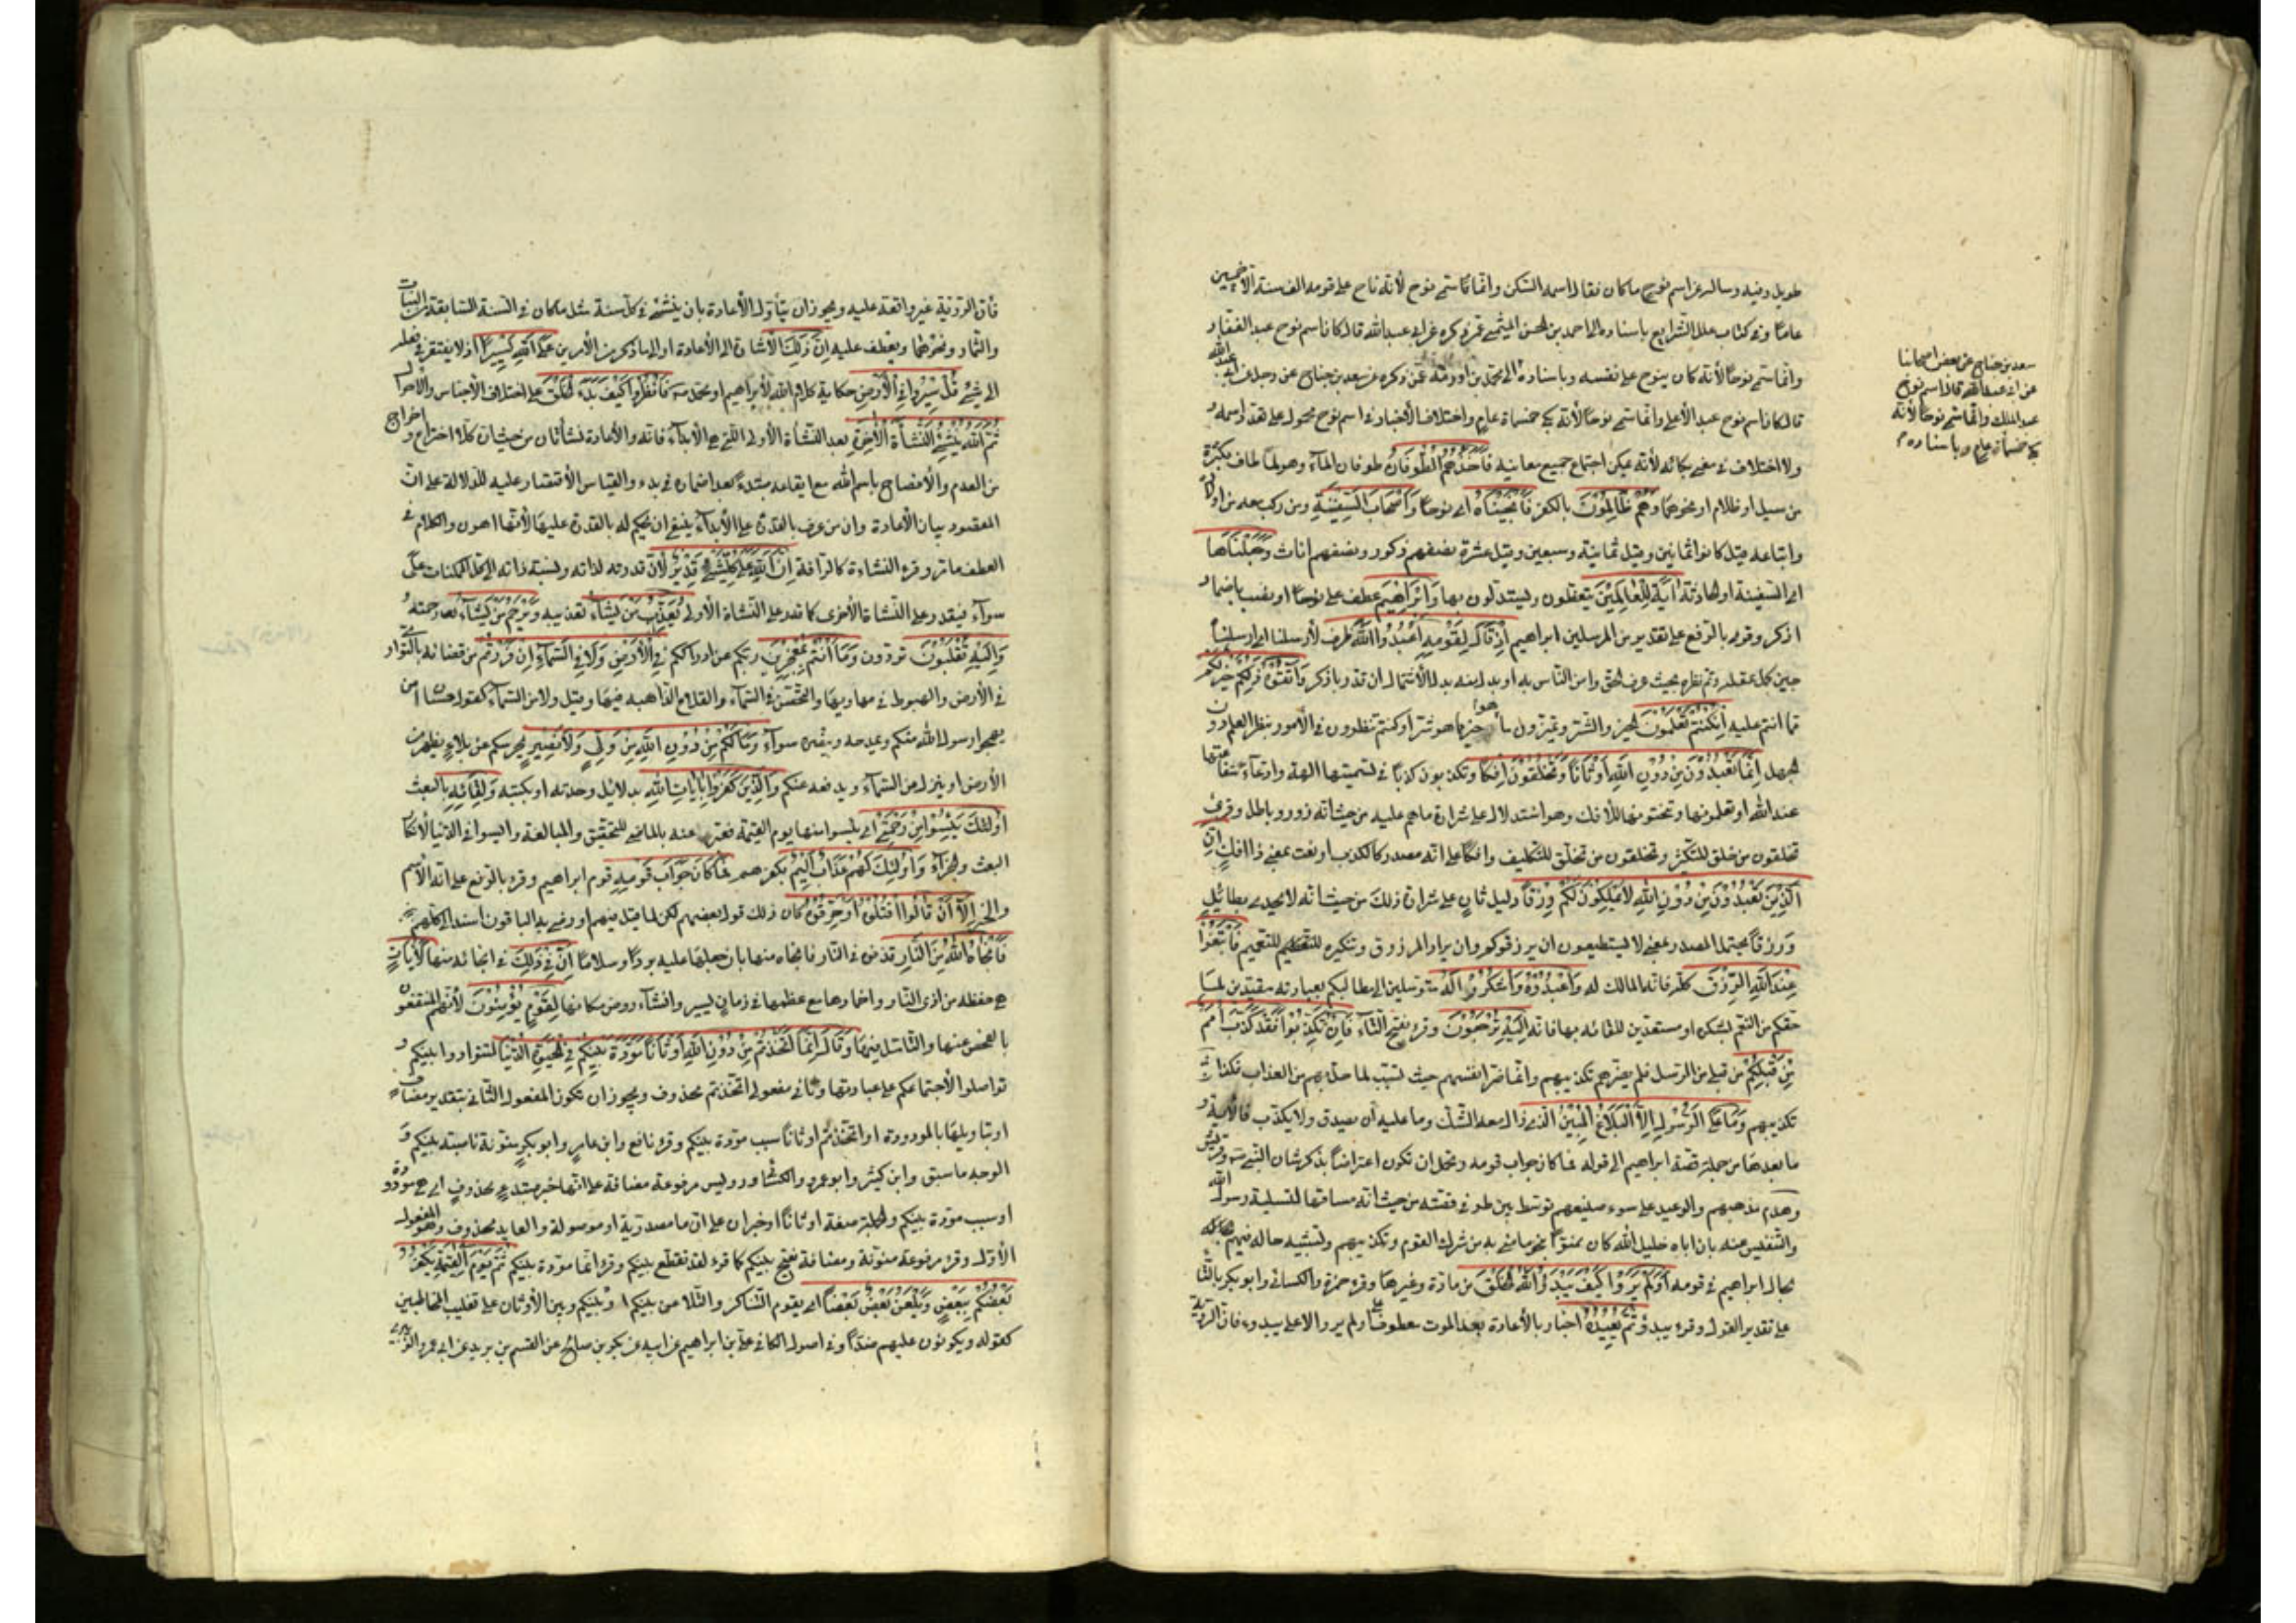 طويل وفيه وسالته عن اسم نوح ما كان فقال اسمه السكن وانما سمي نوح لأنه ناح على قومه الف سنة الا خمسين
عاما وفي كتاب علل الشرايع باسناده الى احمد بن الحسن الميثمي عمن ذكره عن ابي عبدالله قال كان اسم نوح عبد الغفار و
وانما سمي نوحا لأنه كان ينوح على نفسه وباسناده الى محمد بن اورمة عمن ذكره عن سعد بن جناح عن رجل عن ابي عبدالله
قال كان اسم نوح عبد الأعلى وانما سمي نوحا لأنه بكى خمسمائة عام واختلاف الأخبار في اسم نوح محمول على تعدد اسمه و
ولا اختلاف في معنى بكائه لأنه يمكن اجتماع جميع معانيه فَأَخَذَهُمُ الطُّوفَانُ طوفان الماء وهو لما طاف بكثرة
من سيل او ظلام او نحوهما وَهُمْ ظَالِمُونَ بالكفر فَأَنْجَيْنَاهُ اي نوحا وَأَصْحَابَ السَّفِينَةِ ومن ركب معه من اولاده
واتباعه قيل كانوا ثمانين وقيل ثمانية وسبعين وقيل عشرة نصفهم ذكور ونصفهم اناث وَجَعَلْنَاهَا
اي السفينة او الحادثة آيَةً لِلْعَالَمِينَ يتعظون ويستدلون بها وَإِبْرَاهِيمَ عطف على نوحا او نصب باضمار
اذكر وقرئ بالرفع على تقدير من المرسلين ابراهيم إِذْ قَالَ لِقَوْمِهِ اعْبُدُوا اللَّهَ ظرف لأرسلنا اي ارسلناه
حين كمل عقله وتم نظره بحيث عرف الحق وامر الناس به او بدل منه بدل الأشتمال ان قدر باذكر وَاتَّقُوهُ ذَلِكُمْ خَيْرٌ لَكُمْ
مما انتم عليه إِنْ كُنْتُمْ تَعْلَمُونَ الخير والشر وتميزون ما هو خير مما هو شر او كنتم تنظرون في الأمور بنظر العلم دون
الجهل إِنَّمَا تَعْبُدُونَ مِنْ دُونِ اللَّهِ أَوْثَانًا وَتَخْلُقُونَ إِفْكًا وتكذبون كذبا في تسميتها الهة وادعاء شفاعتها
عند الله او تعملونها وتنحتونها للأفك وهو استدلال على شرارة ما هم عليه من حيث انه زور وباطل وقرئ
تخلقون من خلق للتكثير وتخلقون من تخلق للتكليف وافكا على انه مصدر كالكذب او نعت بمعنى ذا افك إِنَّ
الَّذِينَ تَعْبُدُونَ مِنْ دُونِ اللَّهِ لَا يَمْلِكُونَ لَكُمْ رِزْقًا دليل ثان على شرارة ذلك من حيث انه لا يجدي بطائل
ورزقا يحتمل المصدر بمعنى لا يستطيعون ان يرزقوكم وان يراد المرزوق وتنكيره للتعميم فَابْتَغُوا
عِنْدَ اللَّهِ الرِّزْقَ كله فانه المالك له وَاعْبُدُوهُ وَاشْكُرُوا لَهُ متوسلين الى مطالبكم بعبادته مقيدين لما
حقكم من النعم بشكره او مستعدين للقائه بهما فانه إِلَيْهِ تُرْجَعُونَ وقرئ بفتح التاء فَإِنْ تُكَذِّبُوا فَقَدْ كَذَّبَ أُمَمٌ
مِنْ قَبْلِكُمْ من قبلي من الرسل فلم يضرهم تكذيبهم وانما ضر انفسهم حيث تسبب لما حل بهم من العذاب فكذا
تكذيبهم وَمَا عَلَى الرَّسُولِ إِلَّا الْبَلَاغُ الْمُبِينُ الذي زال معه الشك وما عليه ان يصدق ولا يكذب فالآية و
ما بعدها من جملة قصة ابراهيم الى قوله فما كان جواب قومه ويحتمل ان تكون اعتراضا بذكر شان النبي وقريش
وهدم مذهبهم والوعيد على سوء صنيعهم توسط بين طرفي قصته من حيث انه مساقها لتسلية رسول الله
والتنفيس عنه بان اباه خليل الله كان ممنوا بنحو ما مني به من شرك القوم وتكذيبهم وتشبيه حاله فيهم
بحال ابراهيم في قومه أَوَلَمْ يَرَوْا كَيْفَ يُبْدِئُ اللَّهُ الْخَلْقَ من مادة وغيرها وقرئ حمزة والكسائي وابو بكر بالتاء
على تقدير القول وقرئ يبدؤ ثُمَّ يُعِيدُهُ اخبار بالأعادة بعد الموت معطوف على اولم يروا لا على يبدؤ فان الرؤية
سعد بن جناح عن بعض اصحابنا
عن ابي عبدالله قال اسم نوح
عبد الملك وانما سمي نوحا لأنه
بكى خمسمائة عام وباسناده
فان الرؤية غير واقعة عليه ويجوز ان يتأول الأعادة بان ينشئ في كل سنة مثل ما كان في السنة السابقة من النبات
والثمار ونحوهما ويعطف عليه إِنَّ ذَلِكَ الأشارة الى الأعادة او الى ما ذكر من الأمرين عَلَى اللَّهِ يَسِيرٌ اذ لا يفتقر في فعله
الى شيء قُلْ سِيرُوا فِي الْأَرْضِ حكاية كلام الله لأبراهيم او محمد فَانْظُرُوا كَيْفَ بَدَأَ الْخَلْقَ على اختلاف الأجناس والأحوال
ثُمَّ اللَّهُ يُنْشِئُ النَّشْأَةَ الْآخِرَةَ بعد النشأة الأولى التي هي الأبداء فانه والأعادة نشأتان من حيث ان كلا اختراع واخراج
من العدم والأفصاح باسم الله مع ايقاعه مبتدء بعد اضماره في بدء والقياس الأقتصار عليه للدلالة على ان
المقصود بيان الأعادة وان من عرف بالقدرة على الأبداء ينبغي ان يحكم له بالقدرة عليها لأنها اهون والكلام في
العطف ما مر وقرئ النشاءة كالرآفة إِنَّ اللَّهَ عَلَى كُلِّ شَيْءٍ قَدِيرٌ لأن قدرته لذاته ونسبة ذاته الى كل الممكنات على
سواء فيقدر على النشأة الأخرى كما قدر على النشأة الأولى يُعَذِّبُ مَنْ يَشَاءُ تعذيبه وَيَرْحَمُ مَنْ يَشَاءُ رحمته
وَإِلَيْهِ تُقْلَبُونَ تردون وَمَا أَنْتُمْ بِمُعْجِزِينَ ربكم عن ادراككم فِي الْأَرْضِ وَلَا فِي السَّمَاءِ ان فررتم من قضائه بالتواري
في الأرض والهبوط في مهاويها والتحصن في السماء والقلاع الذاهبة فيها وقيل ولا من في السماء كقول حسان امن
يهجو رسول الله منكم ويمدحه وينصره سواء وَمَا لَكُمْ مِنْ دُونِ اللَّهِ مِنْ وَلِيٍّ وَلَا نَصِيرٍ يحرسكم عن بلاء يظهر من
الأرض او ينزل من السماء ويدفعه عنكم وَالَّذِينَ كَفَرُوا بِآيَاتِ اللَّهِ بدلائل وحدته او بكتبه وَلِقَائِهِ بالبعث
أُولَئِكَ يَئِسُوا مِنْ رَحْمَتِي اي ييأسوا منها يوم القيمة فعبر عنه بالماضي للتحقيق والمبالغة وايسوا في الدنيا لأنكار
البعث والجزاء وَأُولَئِكَ لَهُمْ عَذَابٌ أَلِيمٌ بكفرهم فَمَا كَانَ جَوَابَ قَوْمِهِ قوم ابراهيم وقرئ بالرفع على انه الأسم
والخبر إِلَّا أَنْ قَالُوا اقْتُلُوهُ أَوْ حَرِّقُوهُ كان ذلك قول بعضهم لكن لما قيل فيهم او رضي به الباقون اسند الى كلهم
فَأَنْجَاهُ اللَّهُ مِنَ النَّارِ قذفوه في النار فانجاه منها بان جعلها عليه بردا وسلاما إِنَّ فِي ذَلِكَ في انجائه منها لَآيَاتٍ
هي حفظه من اذى النار واخمادها مع عظمها في زمان يسير وانشاء روض مكانها لِقَوْمٍ يُؤْمِنُونَ لأنهم المنتفعون
بالفحص عنها والتأمل فيها وَقَالَ إِنَّمَا اتَّخَذْتُمْ مِنْ دُونِ اللَّهِ أَوْثَانًا مَوَدَّةَ بَيْنِكُمْ فِي الْحَيَوةِ الدُّنْيَا لتتوادوا بينكم و
تواصلوا لأجتماعكم على عبادتها وثاني مفعولي اتخذتم محذوف ويجوز ان تكون المفعول الثاني بتقدير مضاف
او بتاويلها بالمودودة او اتخذتم اوثانا سبب مودة بينكم وقرئ نافع وابن عامر وابو بكر منونة ناصبة بينكم و
الوجه ما سبق وابن كثير وابو عمرو والكسائي ورويس مرفوعة مضافة على انها خبر مبتدء محذوف اي هي مودودة
او سبب مودة بينكم والجملة صفة اوثانا او خبر ان على ان ما مصدرية او موصولة والعايد محذوف وهو المفعول
الأول وقرئ مرفوعة منونة ومضافة بفتح بينكم كما قرئ لقد تقطع بينكم وقرئ انما مودة بينكم ثُمَّ يَوْمَ الْقِيمَةِ يَكْفُرُ
بَعْضُكُمْ بِبَعْضٍ وَيَلْعَنُ بَعْضُكُمْ بَعْضًا اي يقوم التناكر والتلاعن بينكم او بينكم وبين الأوثان على تغليب المخاطبين
كقوله ويكونون عليهم ضدا وفي اصول الكافي علي بن ابراهيم عن ابيه عن بكر بن صالح عن القسم بن بريد عن ابي عمرو الزبيري